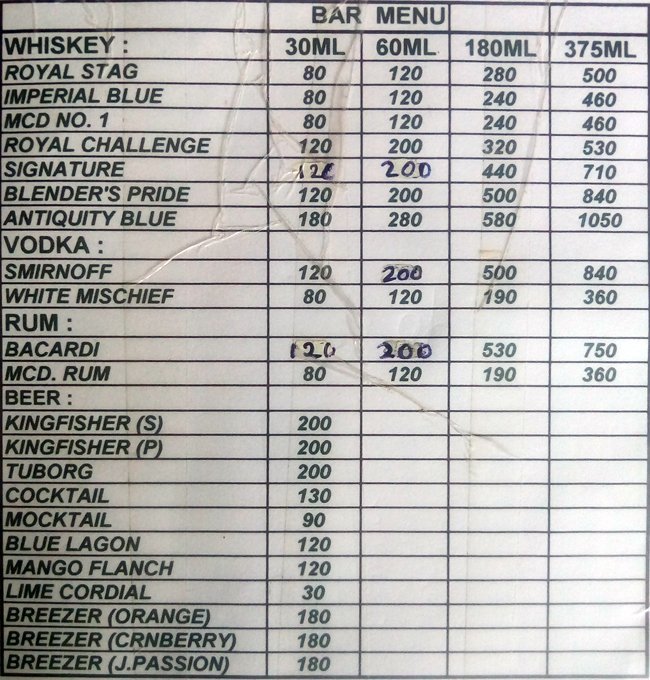 BAR MENU
WHISKEY : 30ML 60ML 180ML 375ML
ROYAL STAG 80 120 280 500
IMPERIAL BLUE 80 120 240 460
MCD NO. 1 80 120 240 460
ROYAL CHALLENGE 120 200 320 530
SIGNATURE 120 200 440 710
BLENDER'S PRIDE 120 200 500 840
ANTIQUITY BLUE 180 280 580 1050
VODKA :
SMIRNOFF 120 200 500 840
WHITE MISCHIEF 80 120 190 360
RUM :
BACARDI 120 200 530 750
MCD. RUM 80 120 190 360
BEER :
KINGFISHER (S) 200
KINGFISHER (P) 200
TUBORG 200
COCKTAIL 130
MOCKTAIL 90
BLUE LAGON 120
MANGO FLANCH 120
LIME CORDIAL 30
BREEZER (ORANGE) 180
BREEZER (CRNBERRY) 180
BREEZER (J.PASSION) 180